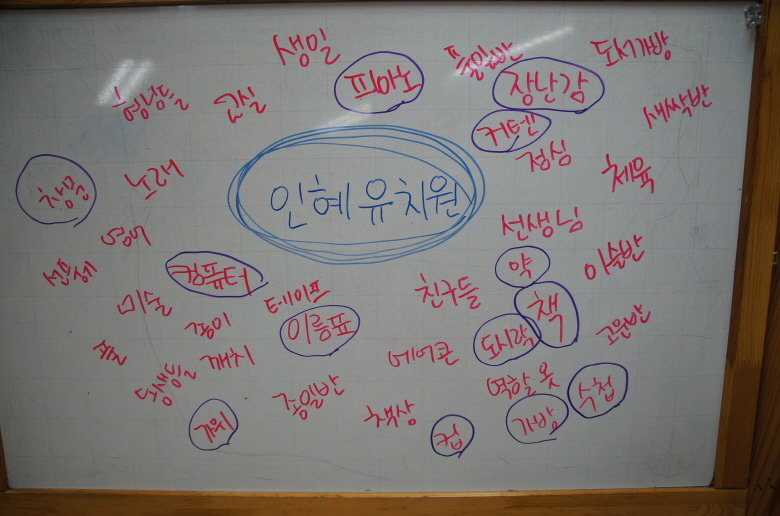 생일
피아노
풀잎반
도서가방
형님들
교실
장난감
새싹반
커텐
점심
체육
창문
노래
인혜유치원
선생님
영어
선풍기
컴퓨터
약
이슬반
미술
종이
테이프
이름표
친구들
책
고운반
동생들
깨치
에어콘
도시락
역할옷
수첩
가위
종일반
책상
컵
가방